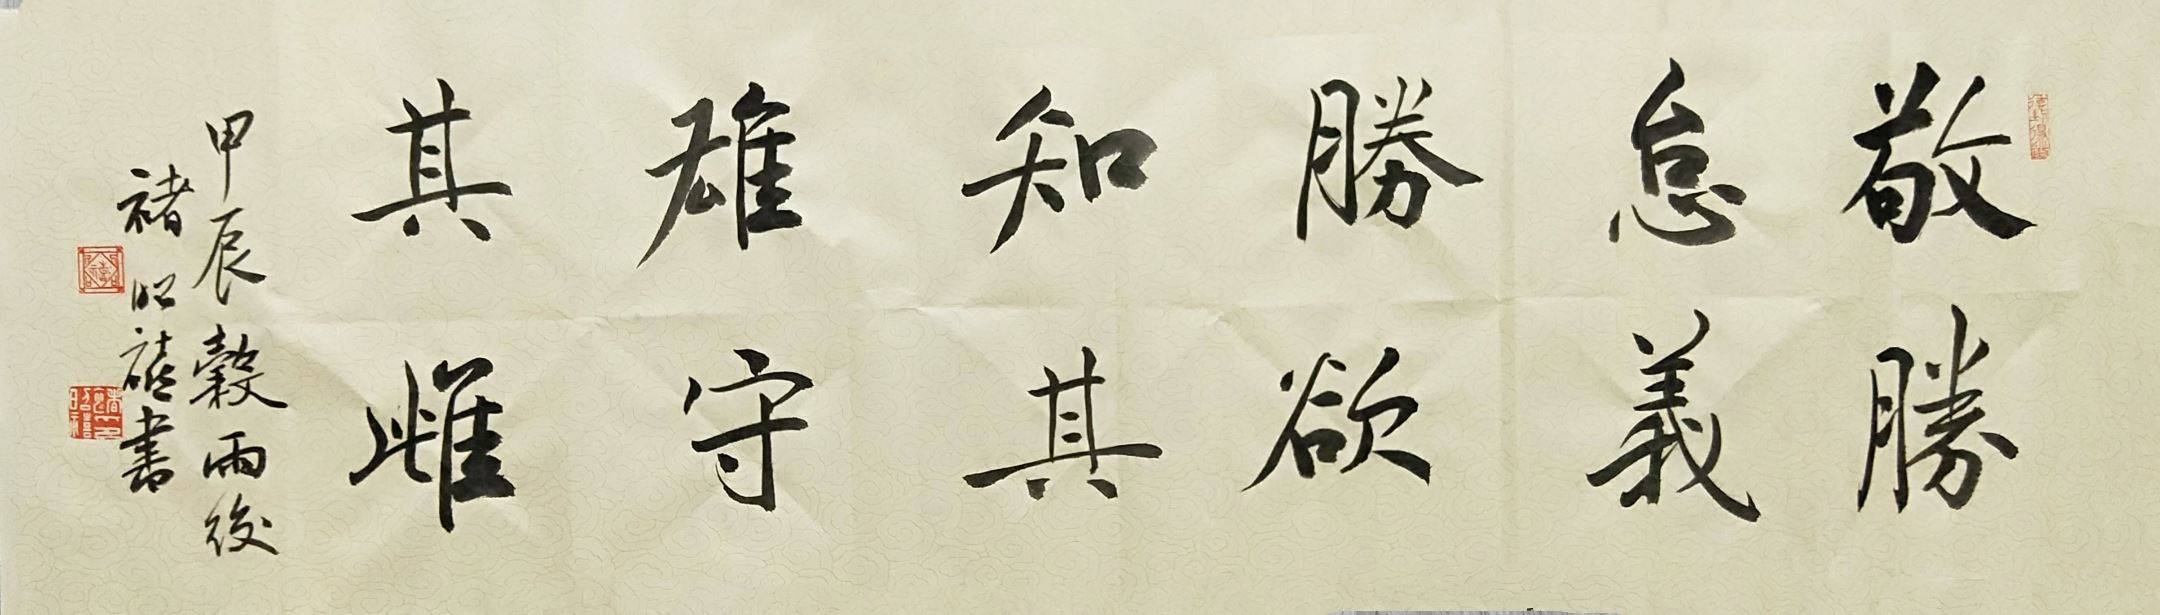 敬勝
怠義
勝欲
知其
雄守
其雌
甲辰穀雨後
禇昭禧書